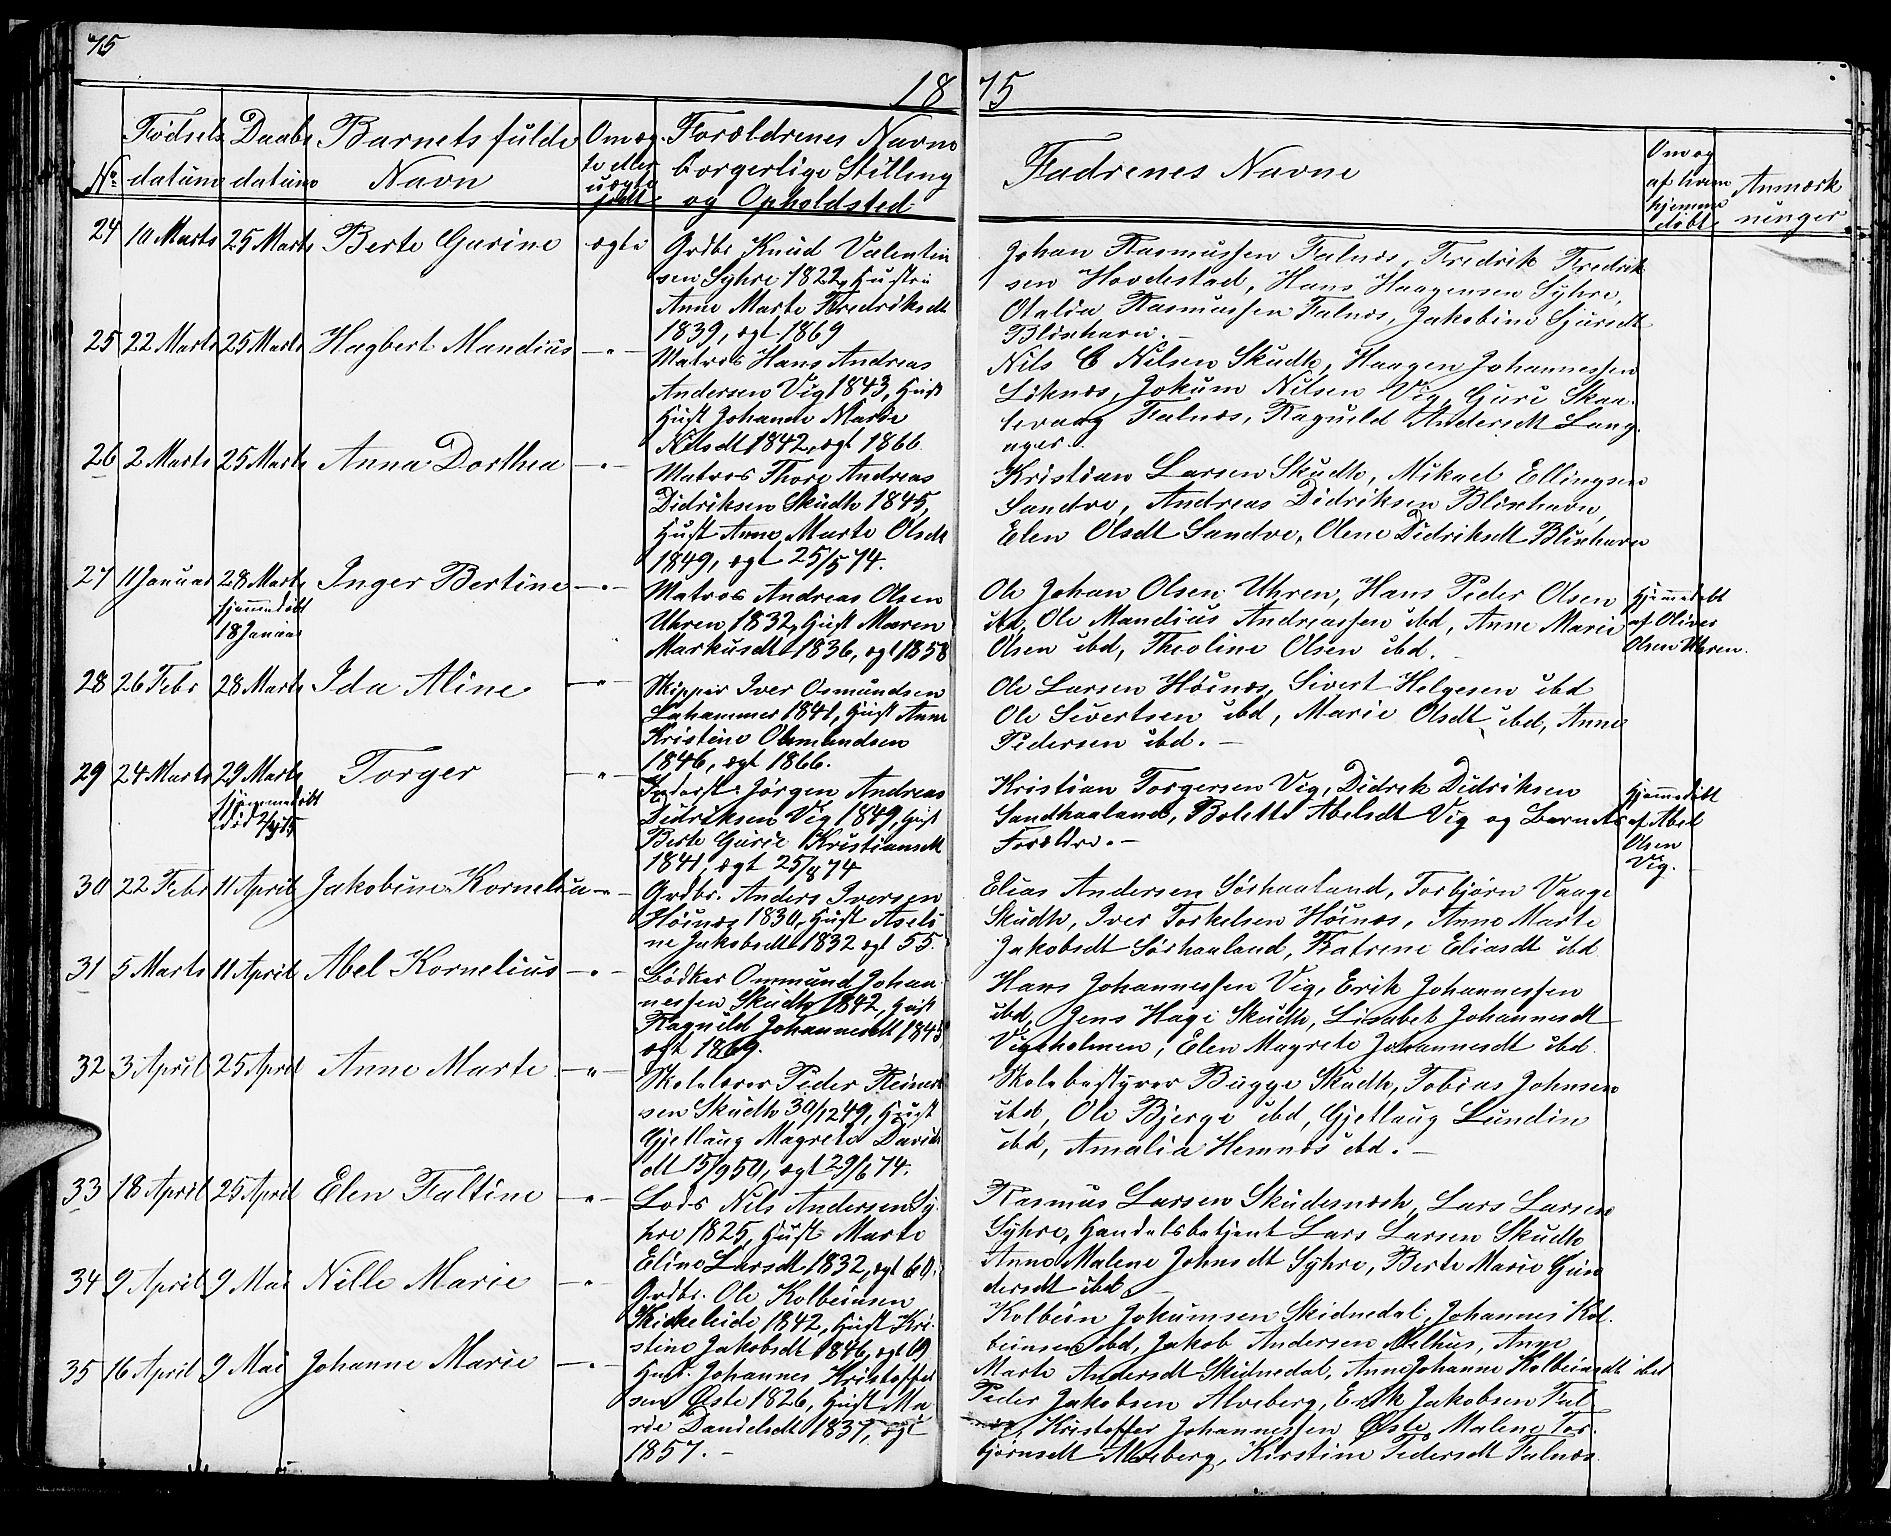 75
18 75
No Fødsels datum Daabs datum Barnets fulde Navn Om ægte eller uægte født Forældrenes Navne borgerlige Stilling og Opholdsted Fadrenes Navne Om og af hvem hjemme døbt Anmærkninger
24 10 Marts 25 Marts Berte Gurine ægte Grdbr Knud Valentin
sen Syhre 1822, Hustru
Anne Marte Fredriksdt
1839, ægt. 1869
Johan Rasmussen Falnæs, Fredrik Fredrik
sen Hovdestad, Hans Haagensen Syhre,
Otalia Rasmussen Falnæs, Jakobine Sjursdt
Blixhavn. —
25 22 Marts 25 Marts Hagbert Mandius —"— Matros Hans Andreas
Andersen Vig 1843, Hust
Hust Johanne Marie
Nilsdt 1842, ægt 1866
Nils C Nilsen Skudh, Haagen Johannessen
Løknæs, Jokum Nilsen Vig, Guri Skaa-
levaag Falnæs, Ragnild Andersdt Lang
ager.
26 2 Marts 25 Marts Anna Dorthea —"— Matros Thore Andreas
Didriksen Skudh 1845,
Hust Anne Marte Olsdt
1849, ægt 25/5 74.
Kristian Larsen Skudh, Mikael Ellingsen
Sandve, Andreas Didriksen Blixhavn,
Elen Olsdt Sandve, Olene Didriksdt Blixhavn
27 11 Januar 28 Marts Inger Bertine —"— Matros Andreas Olsen
hjemmedøbt
18 Januar
Uhren 1832, Hust Maren
Markusdt 1836, ægt 1858
Ole Johan Olsen Uhren, Hans Peder Olsen
ibd, Ole Mandius Andreassen ibd, Anne Marie
Olsen ibd, Theoline Olsen ibd. —
Hjemmedøbt
af Oliver
Olsen Uhren.
28 26 Febr 28 Marts Ida Aline —"— Skipper Iver Osmundsen
Lahammer 1841, Hust Anne
Kristine Osmundsen
1846, ægt 1866.
Ole Larsen Høinæs, Sivert Helgesen ibd
Ole Sivertsen ibd, Marie Olsdt ibd, Anne
Pedersen ibd. —
29 24 Marts 29 Marts Torger —"— Inderst Jørgen Andreas
hjemmedøbt
Didriksen Vig 1849, Hust
Berte Gurie Kristiansdt
1841, ægt 25/8 74
Kristian Torgersen Vig, Didrik Didriksen
Sandhaaland, Bolette Abelsdt Vig og Barnets
Forældre. —
Hjemmedøbt
af Abel
Olsen
Vig.
30 22 Febr 11 April Jakobine Kornelia —"— Grdbr. Anders Iversen
Høinæs 1830, Hust Aseli
ne Jakobsdt 1832 ægt 55.
Elias Andersen Sørhaaland, Torbjørn Vaage
Skudh, Iver Torkelsen Høinæs, Anne Marte
Jakobsdt Sørhaaland, Katrine Eliasdt ibd
31 5 Marts 11 April Abel Kornelius —"— Bødker Ommund Johan
nessen Skudh 1842, Hust
Ragnild Johannesdt 1845
ægt 1869.
Hans Johannessen Vig, Erik Johannessen
ibd, Jens Hagi Skudh, Lisabet Johannesdt
Vigeholmen, Elen Magrete Johannesdt ibd.
32 3 April 25 April Anne Marte —"— Skolelærer Peder Reinert
sen Skudh 30/12 49, Hust
Gjetlaug Magrete David
dt 15/9 50, ægt 29/6 74.
Skolebestyrer Bugge Skudh, Tobias Johnsen
ibd, Ole Bjerge ibd, Gjetlaug Lundin
ibd, Amalia Hemnæs ibd. —
33 18 April 25 April Elen Faltine —"— Lods Nils Andersen Sy
hre 1825, Hust Marte
Eline Larsdt 1832, ægt 60.
Rasmus Larsen Skudesnæsh, Lars Larsen
Syhre, Handelsbetjent Lars Larsen Skudh
Anne Malene Johnsdt Syhre, Berte Marie Gun
dersdt ibd.
34 9 April 9 Mai Nille Marie —"— Grdbr. Ole Kolbeinsen
Kirkeleide 1842, Hust Kri-
stine Jakobsdt 1846, ægt 69
Kolbein Jokumsen Skidnedal, Johannes Kol.
beinsen ibd, Jakob Andersen Melhus, Anne
Marte Andersdt Skidnedal, Anne Johanne Kolbeinsdt ibd
35 16 April 9 Mai Johanne Marie —"— Husm. Johannes Kristoffer
sen Øste 1826, Hust Ma
rie Danielsdt 1837, ægt
1857. —
Peder Jakobsen Alveberg, Erik Jakobsen Fal
næs, Kristoffer Johannessen Øste, Malene Tor-
bjørnsdt Alveberg, Kirstine Pedersdt Falnæs